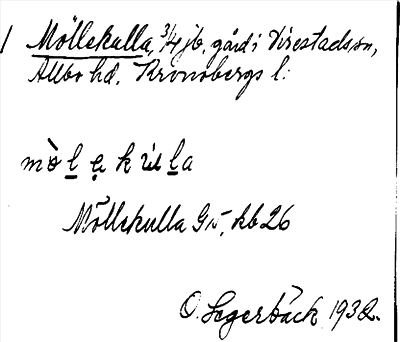 1 Möllekulla, 3/4 jb. gård i Virestads sn,
Allbo hd. Kronobergs l:
mø̀lɐkùlla
Möllekulla G5, kb 26
O. Segerbäck 1932.